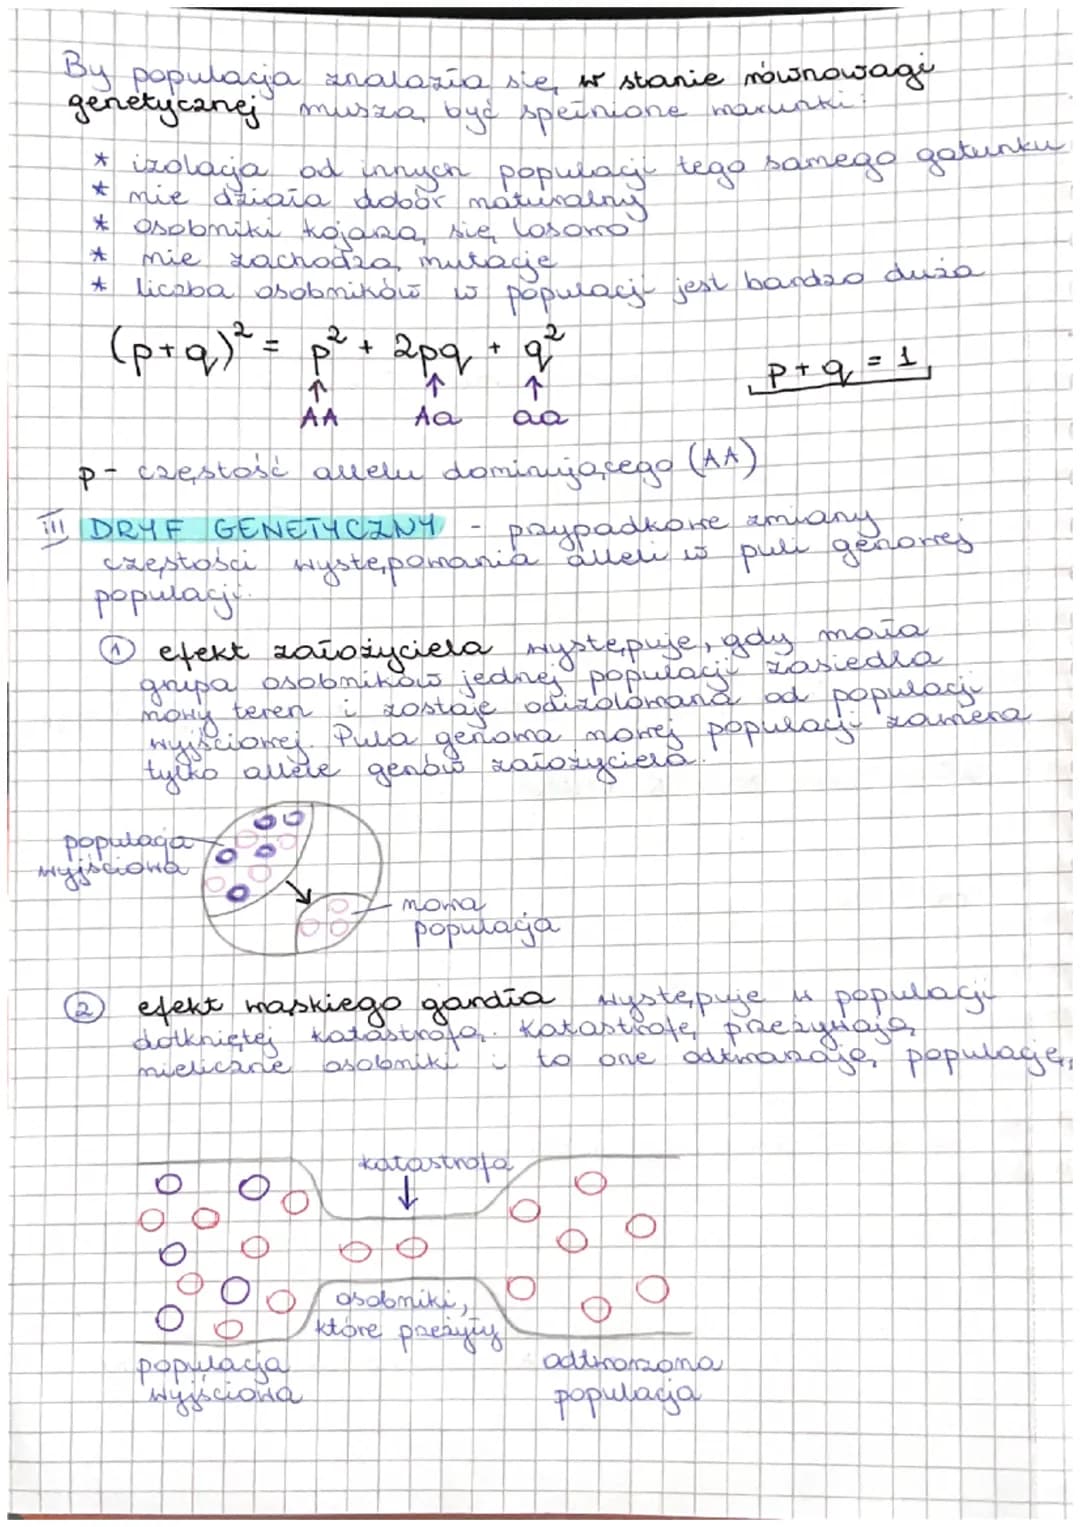 By populacja znalazła się w stanie równowagi
genetycznej muszą być spełnione warunki:
* izolacja od innych populacji tego samego gatunku
* nie działa dobór naturalny
* osobniki kojarzą się losowo
* nie zachodzą mutacje
* liczba osobników w populacji jest bardzo duża
(p+q)² = p² + 2pq + q²
p+q = 1
↑ ↑ ↑
AA Aa aa
p - częstość allelu dominującego (AA)
III DRYF GENETYCZNY - przypadkowe zmiany
częstości występowania alleli w puli genowej
populacji.
① efekt założyciela występuje, gdy mała
grupa osobników jednej populacji zasiedla
nowy teren i zostaje odizolowana od populacji
wyjściowej. Pula genowa nowej populacji zawiera
tylko allele genów założyciela.
populacja
wyjściowa
nowa
populacja
② efekt wąskiego gardła występuje w populacji
dotkniętej katastrofą. Katastrofę przeżywają
nieliczne osobniki i to one odtwarzają populację,
katastrofa
osobniki,
które przeżyły
populacja
wyjściowa
odtworzona
populacja